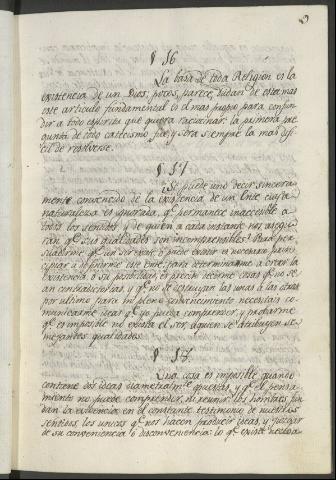 § 16
La basa de toda Religion es la
existencia de un Dios: pocos, parece, dudan de esta mas
este articulo fundamental es el mas propio para confun-
dir a todo espiritu que quiera raciocinar. la primera pre-
gunta de todo catecismo fue, y será siempre la mas dif-
cil de resolverse.
§ 17
¿Se puede uno decir sincera-
mente convencido de la existencia de un Ente cuya
naturaleza es ignorada, qe. permanece inaccesible a
todos los sentidos, y de quien a cada instante nos asegu-
ran qe. sus qualidades son incomprensibles? Para per-
suadirme qe. un ser existe, o puede existir es necesario prin-
cipiar a definirme este Ente; para determinarme a creer la
existencia, o su posibilidad, es preciso decirme cosas qe. no se-
an contradictorias, y qe. no se destruyan las unas a las otras
por ultimo para mi pleno convencimiento necesitais co-
municarme ideas qe. yo pueda comprender, y probarme
qe. es imposible no exista el ser a quien se atribuyen se-
mejantes qualidades.
§ 18.
Una cosa es imposible quando
contiene dos ideas diametralmte. opuestas, y qe. el pensa-
miento no puede comprender, ni reunir: los hombres fun-
dan la evidencia en el constante testimonio de nuestros
sentidos, los unicos qe. nos hacen producir ideas, y juzgar
de su conveniencia o disconveniencia: lo qe. existe necesa-